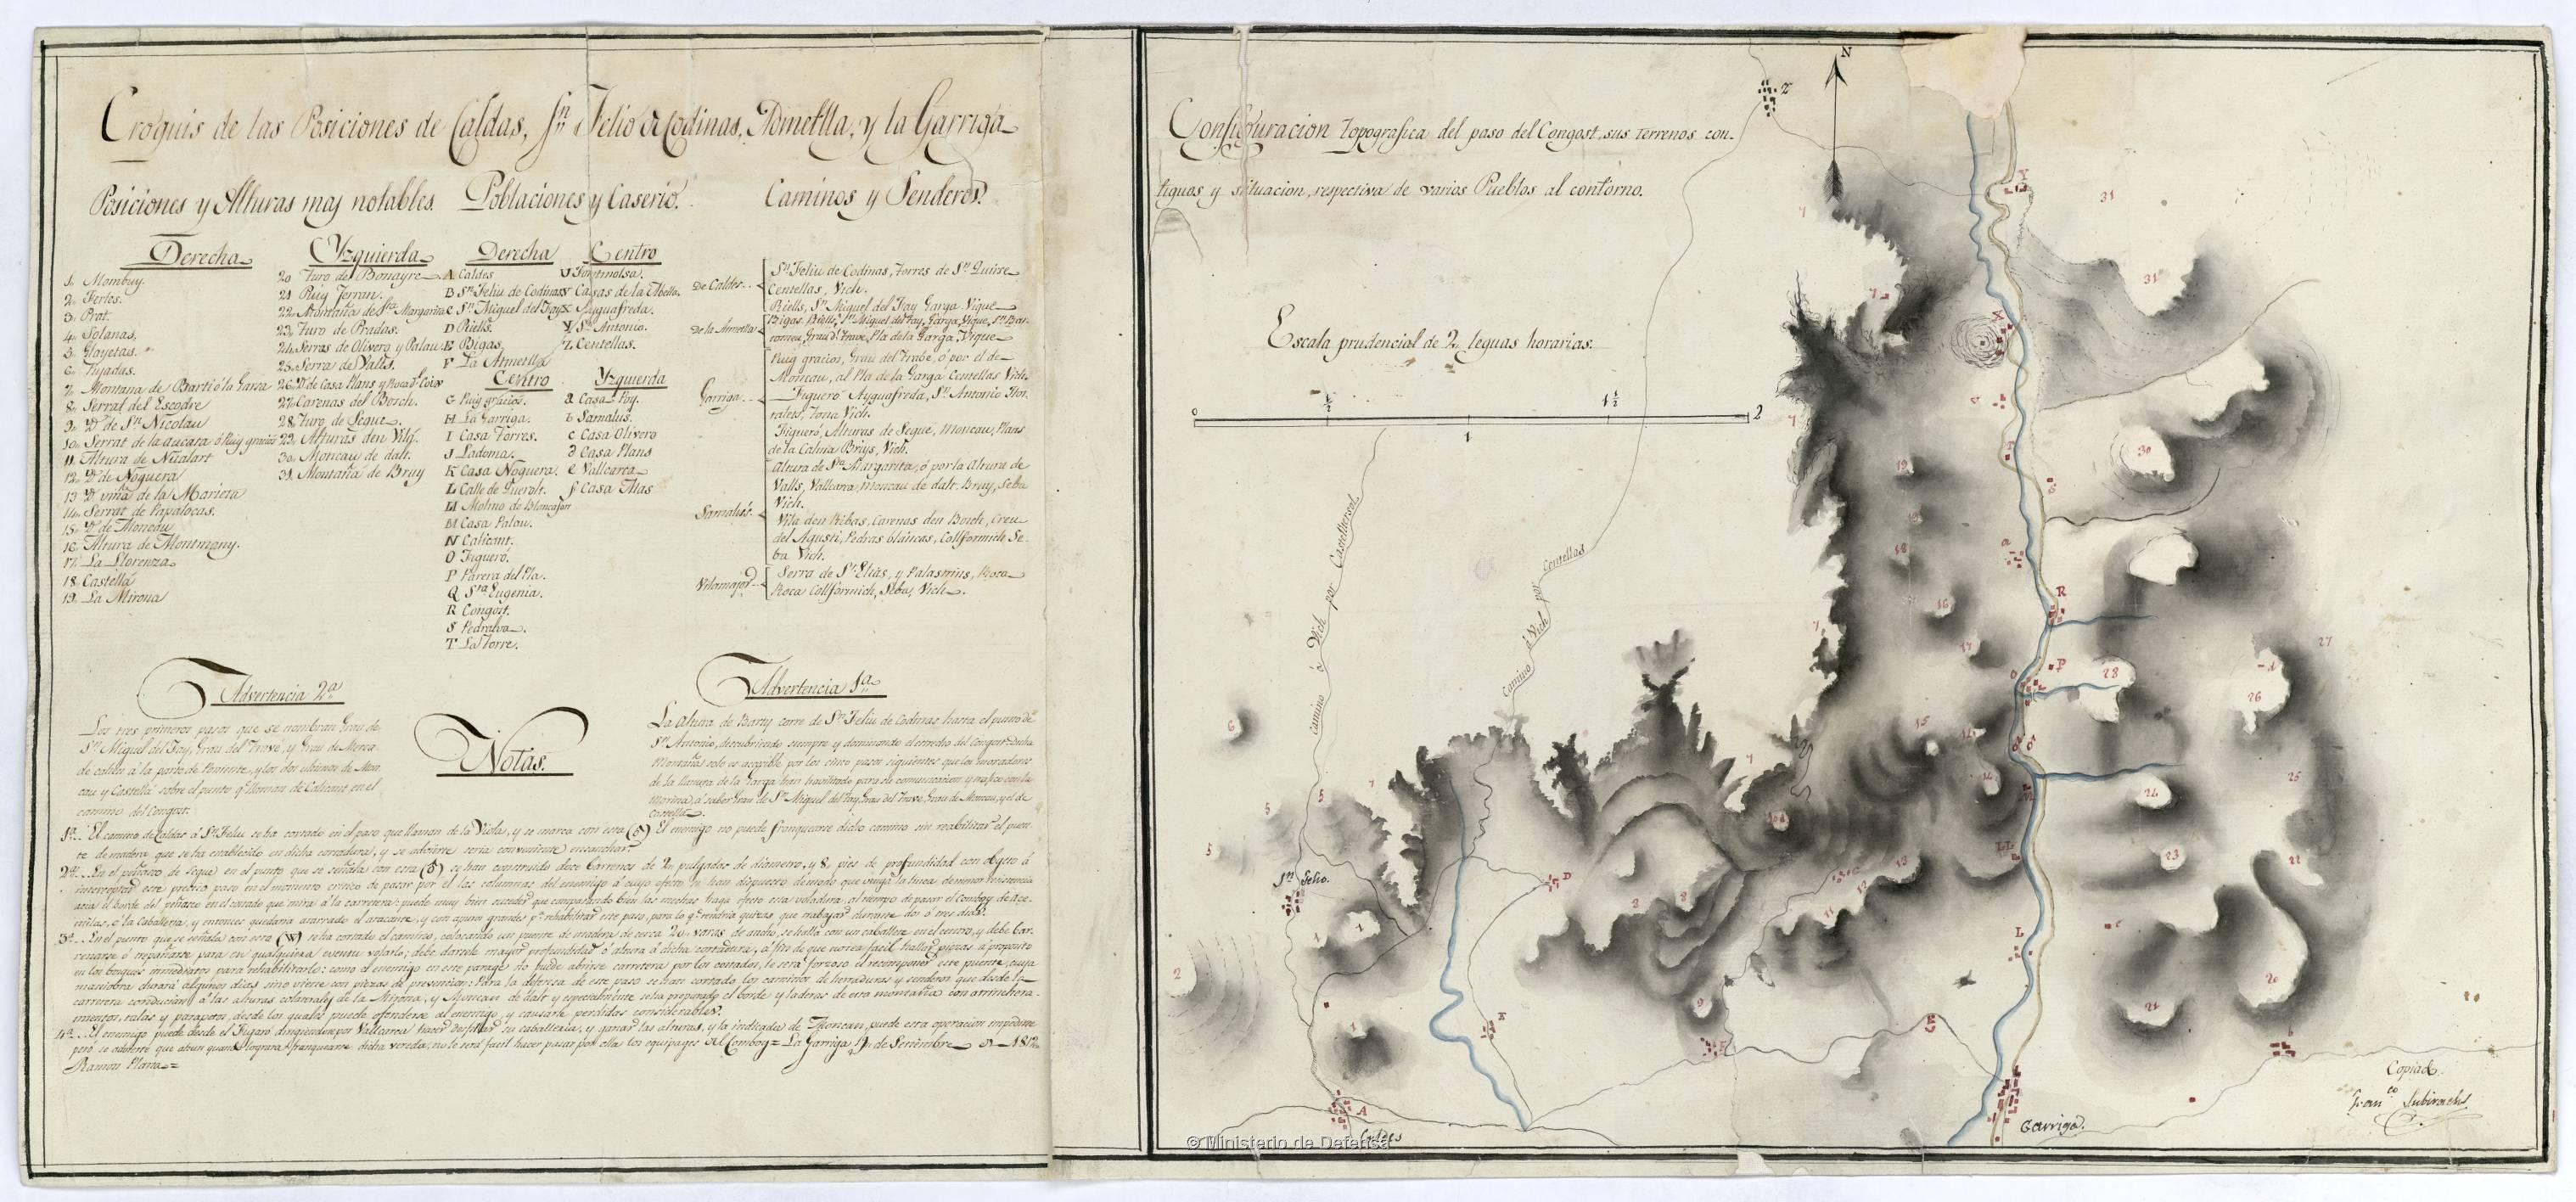 Croquis de las Posiciones de Caldas, Sn. Felio de Codinas, Ametlla, y la Garriga
Posiciones y Alturas mas notables.
Derecha
1. Mombuy.
2. Fertes.
3. Prat.
4. Solanas,
5. Glayetas.
6. Pujadas.
7. Montaña de Bartí ó la Garsa
8. Serrat del Escodre
9. Yd. de Sn. Nicolau
10. Serrat de la aucata ó Puig gracios
11. Altura de Nualart
12. Yd. de Noguera
13. Yd. viña de la Mariera
14. Serrat de Papalocas.
15. Yd. de Moncau
16. Altura de Montmany.
17. La Llorenza
18. Castellá
19. La Mirona
Yzquierda
20 Turo de Bonayre
21 Puig Ferran.
22. Montaña de Sta. Margarita
23. Turo de Pradas.
24. Serras de Olivero y Palau
25. Serra de Valls.
26. Yd. de Casa Plans y
27. Carenas del Borch.
28. Turo de Segue.
29. Alturas den Vilá.
30. Moncau de dalt.
31. Montaña de Bruy
Poblaciones y Caserio.
Derecha
A Caldes
B Sn. Feliu de Codinas
C Sn. Miguel del Fay
D Riells.
E Bigas.
F La Ametlla
Centro
G Puig gracios.
H La Garriga.
I Casa Torres.
J Ladoma.
K Casa Noguera.
L Calle de Querolt.
Ll Molino de Blancafort
M Casa Palau.
N Calicant.
O Figueró.
P Parera del Pla.
Q Sta. Eugenia.
R Congost.
S Pedralva.
T La Torre.
Centro
V Casas de la Abella.
X Ayguafreda.
Y Sn. Antonio.
Z Centellas.
Yzquierda
a Casa Puy.
b Samalus.
c Casa Olivero
d Casa Plans
e Vallcarca
f Casa Mas
Caminos y Senderos.
De Caldes.
Sn. Feliu de Codinas, Torres de Sn. Quirse
Centellas, Vich.
Riells, Sn. Miguel del Fay Garga Vique
De la Ametlla
Bigas Riells, Sn. Miguel del Fay, Garga, Vique,
Pla de la Garga, Vique
Garriga.
Puig gracios, Grau del Trabe, ó por el de
Moncau, al Pla de la Garga Centellas Vich.
Figueró Ayguafreda, Sn. Antonio Hos-
talets, Tona Vich.
Figueró, Alturas de Segue, Moncau, Plans
de la Calma Bruys, Vich.
Samalús.
Altura de Sta. Margarita, ó por la Altura de
Valls, Vallcarca, Moncau de dalt, Bruy, Seba
Vich.
Vila den Ribas, Carenas den Borch, Creu
del Agusti, Pedras blancas, Collformich Se-
ba Vich.
Vilamajor
Serra de Sn. Elias, y Palastrins, Roca
Roca Collformich, Sebas Vich.
Advertencia 2a.
Los tres primeros pasos que se nombran Grau de
Sn. Miguel del Fay, Grau del Trove, y Grau de Merca-
de caben á la parte de Poniente, y los dos ultimos de Mon-
cau y Castellá sobre el punto q. llaman de Calicant en el
camino del Congost.
Notas.
Advertencia 1a.
La Altura de Barty corre de Sn. Feliu de Codinas hasta el punto de
Sn. Antonio, descubriendo siempre y dominando el estrecho del Congost dicha
Montaña solo es accesible por los cinco pasos siguientes que los moradores
de la llanura de la Garga han habilitado para su comunicacion y trafico con la
Marina, á saber Grau de Sn. Miguel del Fay, Grau del Trove, Grau de Moncau, y el de
Castellá.
1a. El camino de Caldas á Sn. Feliu se ha cortado en el paso que llaman de la Violas, y se marca con esta El enemigo no puede franquearse dicho camino sin reabilitar el puen-
te de madera que se ha establecido en dicha cortadura, y se advierte seria conveniente ensanchar
2a. En el peñasco de Segue en el punto que se señala con esta se han construido doce Barrenos de 2 pulgadas de diametro, y 8 pies de profundidad con objeto á
interceptar este preciso paso en el momento critico de pasar por el las columnas del enemigo á cuyo efecto se han dispuesto de modo que venga la linea de menor resistencia
acia el borde del peñasco en el costado que mira á la carretera: puede muy bien suceder que compasando bien las mechas haga efecto esta voladura, al tiempo de pasar el Comboy de ace-
milas, ó la Caballeria, y entonces quedaria atacado el atacante, y con apuros grandes pa. rehabilitar este paso, para lo q. tendria quizas que trabajar durante dos ó tres dias.
3a. En el punto que se señala con esta (W) se ha cortado el camino, colocando un puente de madera de cerca 20 varas de ancho, se halla con un caballete en el centro, y debe Bar-
renarse ó rempararse para en qualquiera evento volarlo; debe darsele mayor profundidad ó altura á dicha cortadura, á fin de que no sea facil hallar piezas á proposito
en los bosques inmediatos para rehabilitarlo: como el enemigo en este parage no puede abrirse carretera por los costados, le será forzoso el recomponer este puente, cuya
maniobra durará algunos dias sino viene con piezas de prevencion: Para la defensa de este paso se han cortado los caminos de herraduras y senderos que desde la
carretera conducian á las alturas colaterales de la Mirona, y Moncau de dalt y especialmente se ha preparado el borde y laderas de esta montaña con atrinchera-
mientos, talas y parapetos, desde los quales puede ofenderse al enemigo, y causarle perdidas considerables.
4a. El enemigo puede desde el Figaró dirigiendose por Vallcarca hacer desfilar su caballeria, y ganar las alturas, y la indicada de Moncau, puede esta operacion impedirse
pero se advierte que aun quando lograra franquearse dicha vereda, no le será facil hacer pasar por ella los equipages del Comboy = La Garriga 19 de Setiembre de 1812
Ramon Planta =
N
Configuracion topografica del paso del Congost, sus terrenos con-
tiguos y situacion respectiva de varios Pueblos al contorno.
Escala prudencial de 2 leguas horarias.
0 ½ 1 1½ 2
camino á Vich por Castelltersol
Camino á Vich por Centellas
Z
Y
X
T
S
R
P
O
LL
L
D
E
F
A
K
b
Sn. Felio.
Caldes
Garriga.
1 1 1 2 5 5 5 6 7 7 7 7 7 7 7 8 8 9 10 11 12 13 14 14 15 16 17 18 19 19 20 21 22 23 24 25 26 27 28 30 31 31
Copiado.
Franco. Subirachs
© Ministerio de Defensa